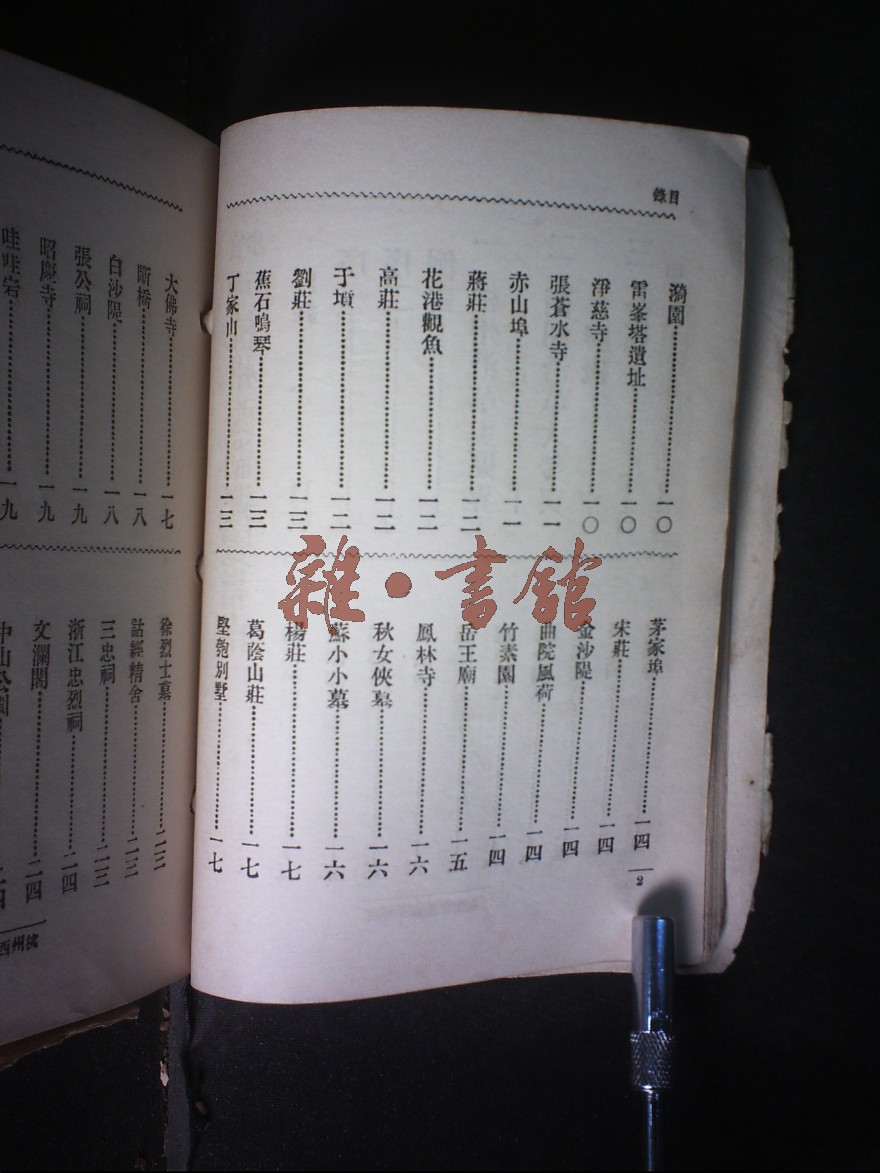 目錄
漪園…………一〇
雷峯塔遺址…………一〇
淨慈寺…………一〇
張蒼水寺…………一一
赤山埠…………一一
蔣莊…………一二
花港觀魚…………一二
高莊…………一二
于墳…………一二
劉莊…………一三
蕉石鳴琴…………一三
丁家山…………一三
茅家埠…………一四
宋莊…………一四
金沙隄…………一四
曲院風荷…………一四
竹素園…………一四
岳王廟…………一五
鳳林寺…………一六
秋女俠墓…………一六
蘇小小墓…………一六
楊莊…………一七
葛蔭山莊…………一七
堅匏別墅…………一七
2
大佛寺…………一七
斷橋…………一八
白沙隄…………一八
張公祠…………一九
昭慶寺…………一九
哇哇宕…………一九
徐烈士墓…………二三
詁經精舍…………二三
三忠祠…………二三
浙江忠烈祠…………二四
文瀾閣…………二四
中山公園…………二四
杭州西
雜·書館